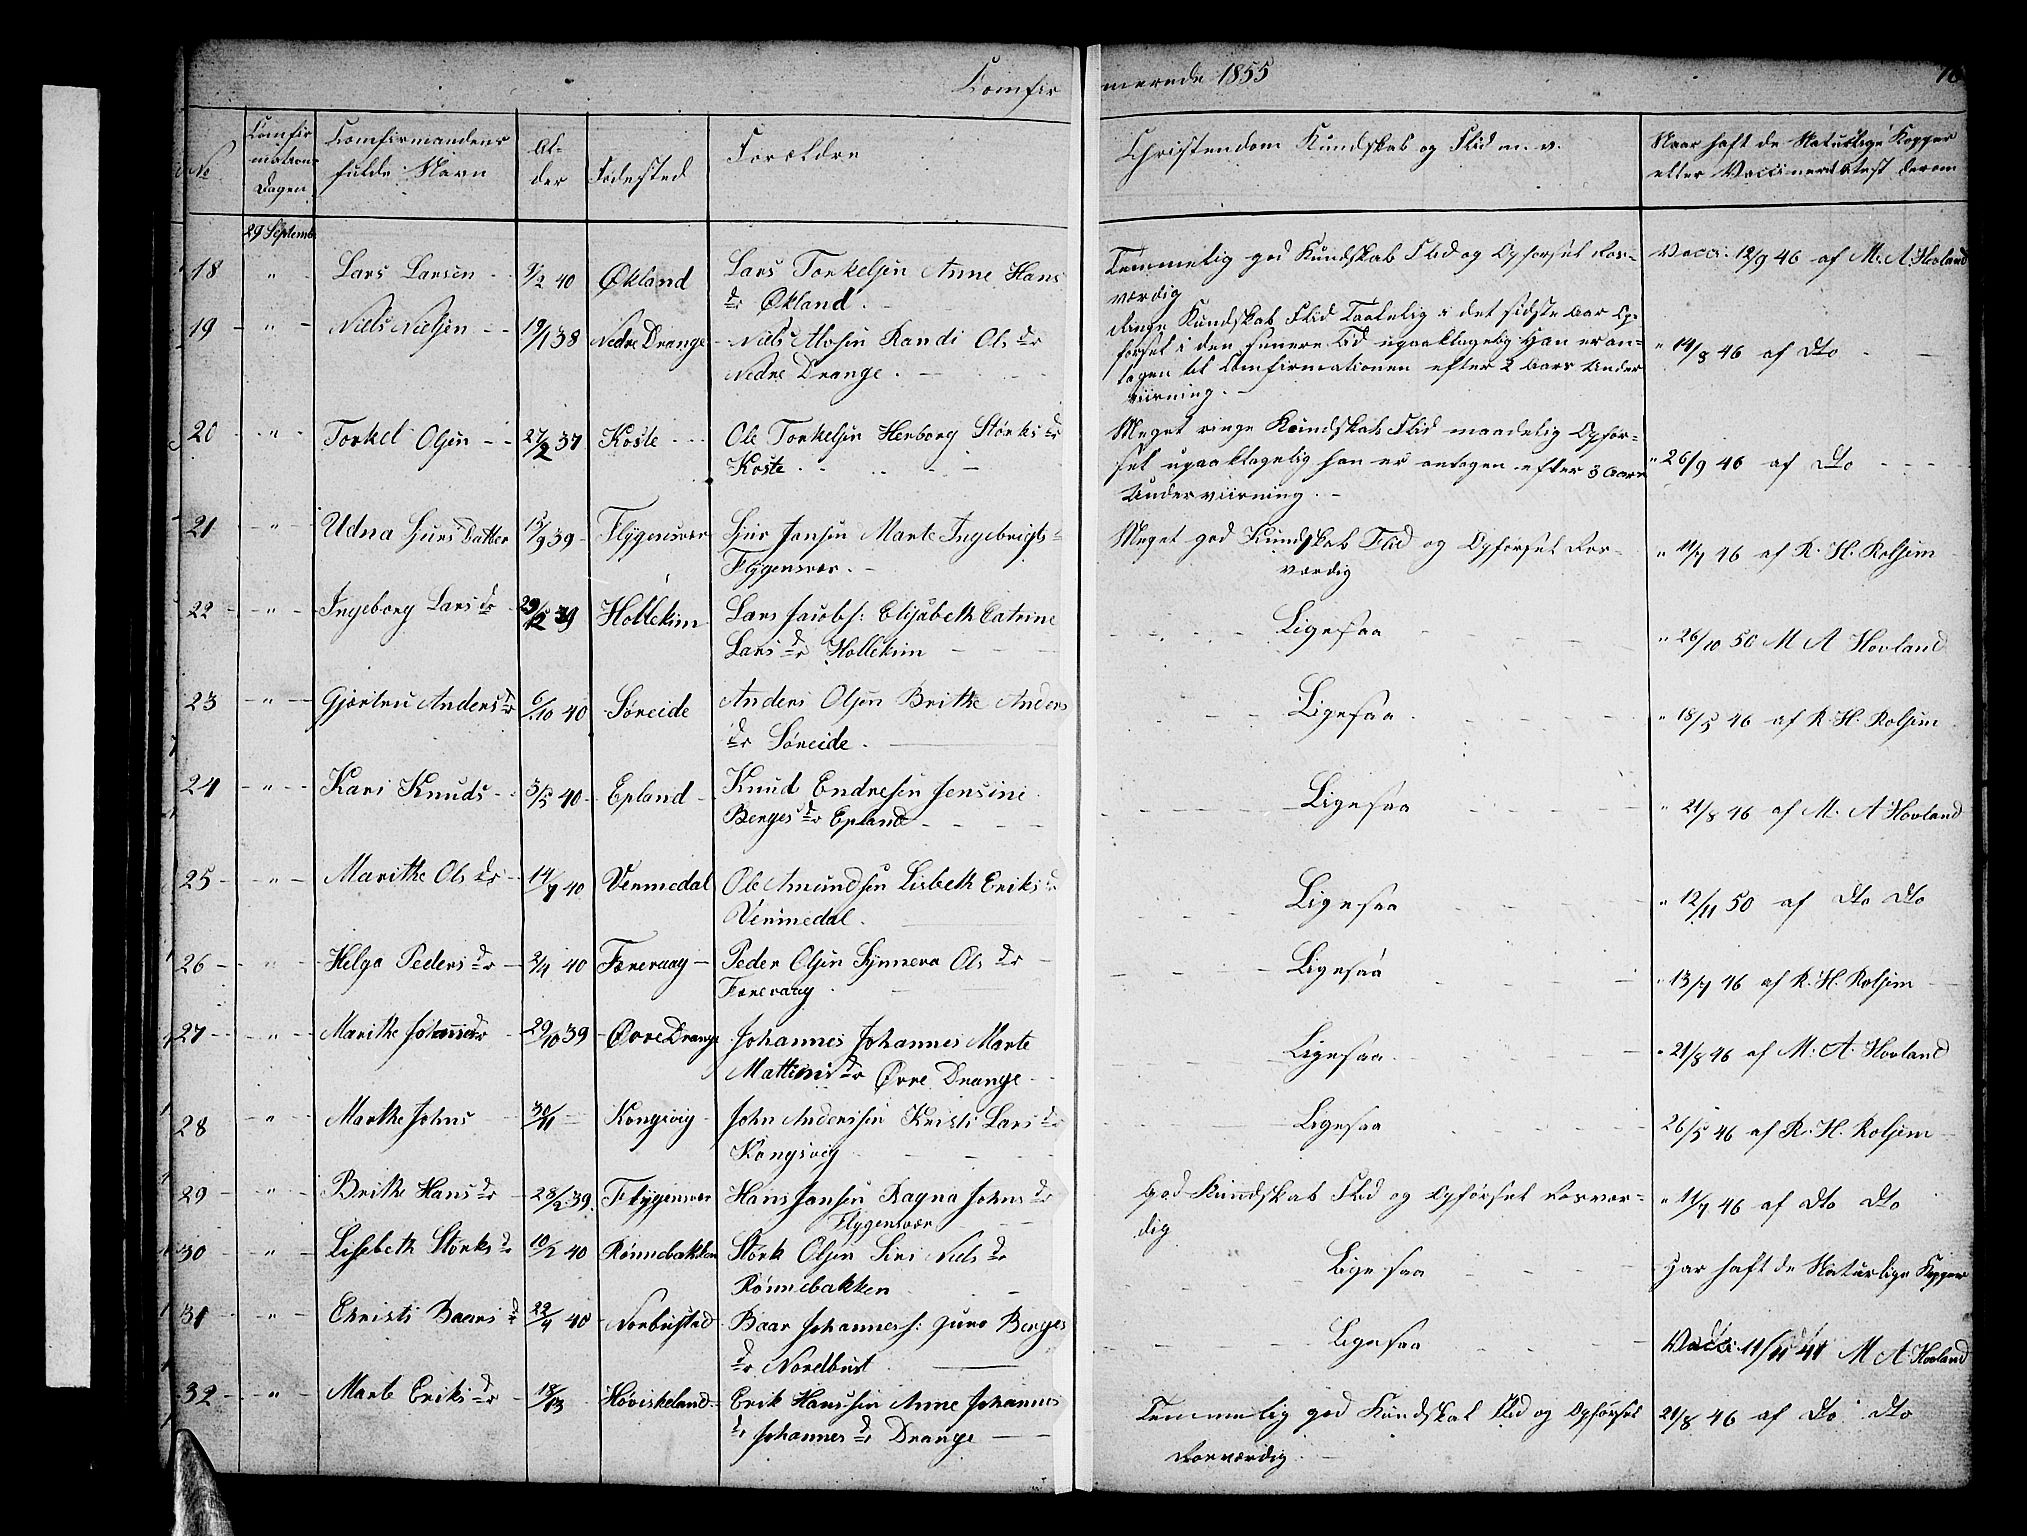 Comfirmerede 1855
No
Comfirmations Dagen
Comfirmandens fulde Navn
Alder
Fødested
Forældre
Christendom Kundskab og Flid m. v.
Naar haft de Naturlige Kopper
eller Vaccineret Atest derom
29 Septemb
18 " Lars Larsen 40 Økland Lars Torkelsen Anne Hans
dr Økland
Temmelig god Kundskab Flid og Opførsel Rosværdig
Vacci. 12/9 46 af M. A. Hovland
19 " Niels Nielsen 19/1 38 Nedre Drange Niels Randi Ols dr
Nedre Drange
Kundskab Flid Taalelig i det sidste Aar Op-
førsel i den senere Tid upaaklagelig Han er an-
tagen til Comfirmationen efter 2 Aars Under
viisning.
" 14/8 46 af Dto
20 " Torkel Olsen 27/2 37 Koste Ole Torkelsen Herborg Størks dr
Koste
Meget ringe Kundskab Flid maadelig Opfør-
sel upaaklagelig han er antagen efter 3 Aars
Underviisning.
" 26/9 46 af Dto
21 " Udna Gurs Datter 15/9 39 Flygensvær Gur Jansen Marte Ingebrigts
Flygensvær
Meget god Kundskab Flid og Opførsel Ros-
værdig
" 11/7 46 af R. H. Roljem
22 " Ingeborg Lars dr 29/12 39 Hollekim Lars Jacobs: Elisabeth Catrine
Lars dr Hollekim
Ligesaa
" 26/10 50 M A Hovland
23 " Gjertru Anders dr 6/10 40 Søreide Anders Olsen Brithe Anders
dr Søreide
Ligesaa
" 18/5 46 af R. H. Roljem
24 " Kari Knuds 3/5 40 Epland Knud Endresen Jensine
Berges dr Epland
Ligesaa
" 21/8 46 af M. A Hovland
25 " Marithe Ols dr 14/7 40 Venmedal Ole Amundsen Lisbeth Eriks dr
Venmedal
Ligesaa
" 12/11 50 af Dto Dto
26 " Helga Peders dr 2/4 40 Færevaag Peder Olsen Synneva Ols dr
Færevaag
Ligesaa
" 13/7 46 af R. H. Roljem
27 " Marithe Johannes dr 29/10 39 Øvre Drange Johannes Johannes Marte
Mattinis dr Øvre Drange
Ligesaa
" 21/8 46 af M. A. Hovland
28 " Marthe Johns 30/11 Kongsvig John Anderssen Kristi Lars dr
Kongsvig
Ligesaa
26/5 46 af R. H. Roljem
29 " Brithe Hans dr 28/2 39 Flygensvær Hans Jansen Ragna Johns dr
Flygensvær
God Kundskab Flid og Opførsel Rosvær-
dig
" 11/7 46 af Dto Dto
30 " Lisebeth Størks dr 10/2 40 Rønnebakken Størk Olsen Siri Niels dr
Rønnebakken
Ligesaa
Har haft de Naturlige Kopper
31 " Christi Baars d 22/4 40 Norbustad Baar Johanness: Guro Berges
dr Nordbust
Ligesaa
Vacci. 11/11 41 M A. Hovland
32 " Marte Eriks dr Høviskeland Erik Hanssen Anne Johannes
dr Johannes dr Drange
Temmelig god Kundskab Flid og Opførsel
Rosværdig
21/8 46 af Dto Dto